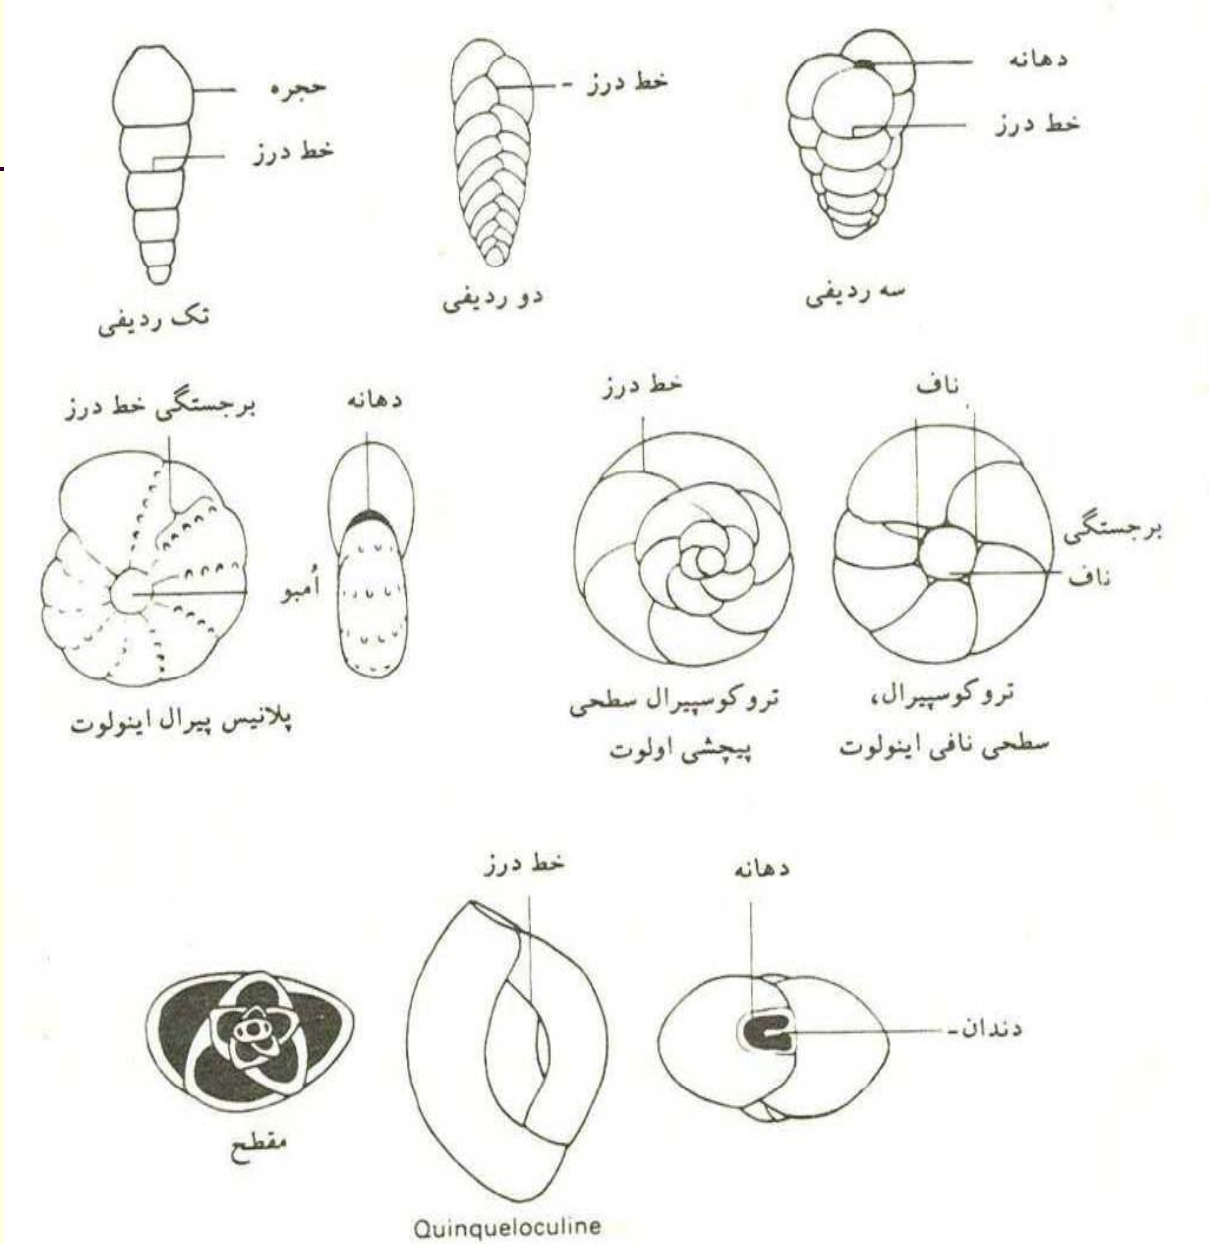 دهانه
خط درز
سه ردیفی
خط درز
دو ردیفی
حجره
خط درز
تک ردیفی
ناف
برجستگی
ناف
تروکوسپیرال،
سطحی نافی اینولوت
خط درز
تروکوسپیرال سطحی
پیچشی اولوت
دهانه
برجستگی خط درز
اُمبو
پلانیس پیرال اینولوت
دهانه
دندان
خط درز
Quinqueloculine
مقطح